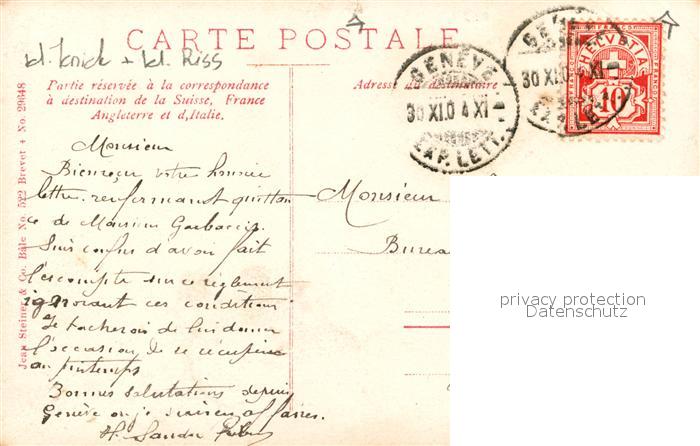 kl. Knick + kl. Riss
CARTE POSTALE
Partie réservée à la correspondance
à destination de la Suisse, France
Angleterre et d'Italie.
Adresse du destinataire
GENÈVE
30 XI.0 4 XI
EXP. LETT.
30 XI.0 4 XI
EXP. LE
HELVETIA
10
FRANCO
Jean Steiner & Co. Bâle No. 522 Brevet + No. 29648
Monsieur
Bien reçu votre honorée
lettre renfermant quittan
ce de Monsieur
Suis confus d'avoir fait
l'escompte sur ce règlement
ignorant ces conditions
Je tacherai de lui donner
l'occasion de se récupérer
au printemps
Bonnes salutations depuis
Genève où je suis en affaires.
H. Sandoz
Monsieur
Burea
privacy protection
Datenschutz